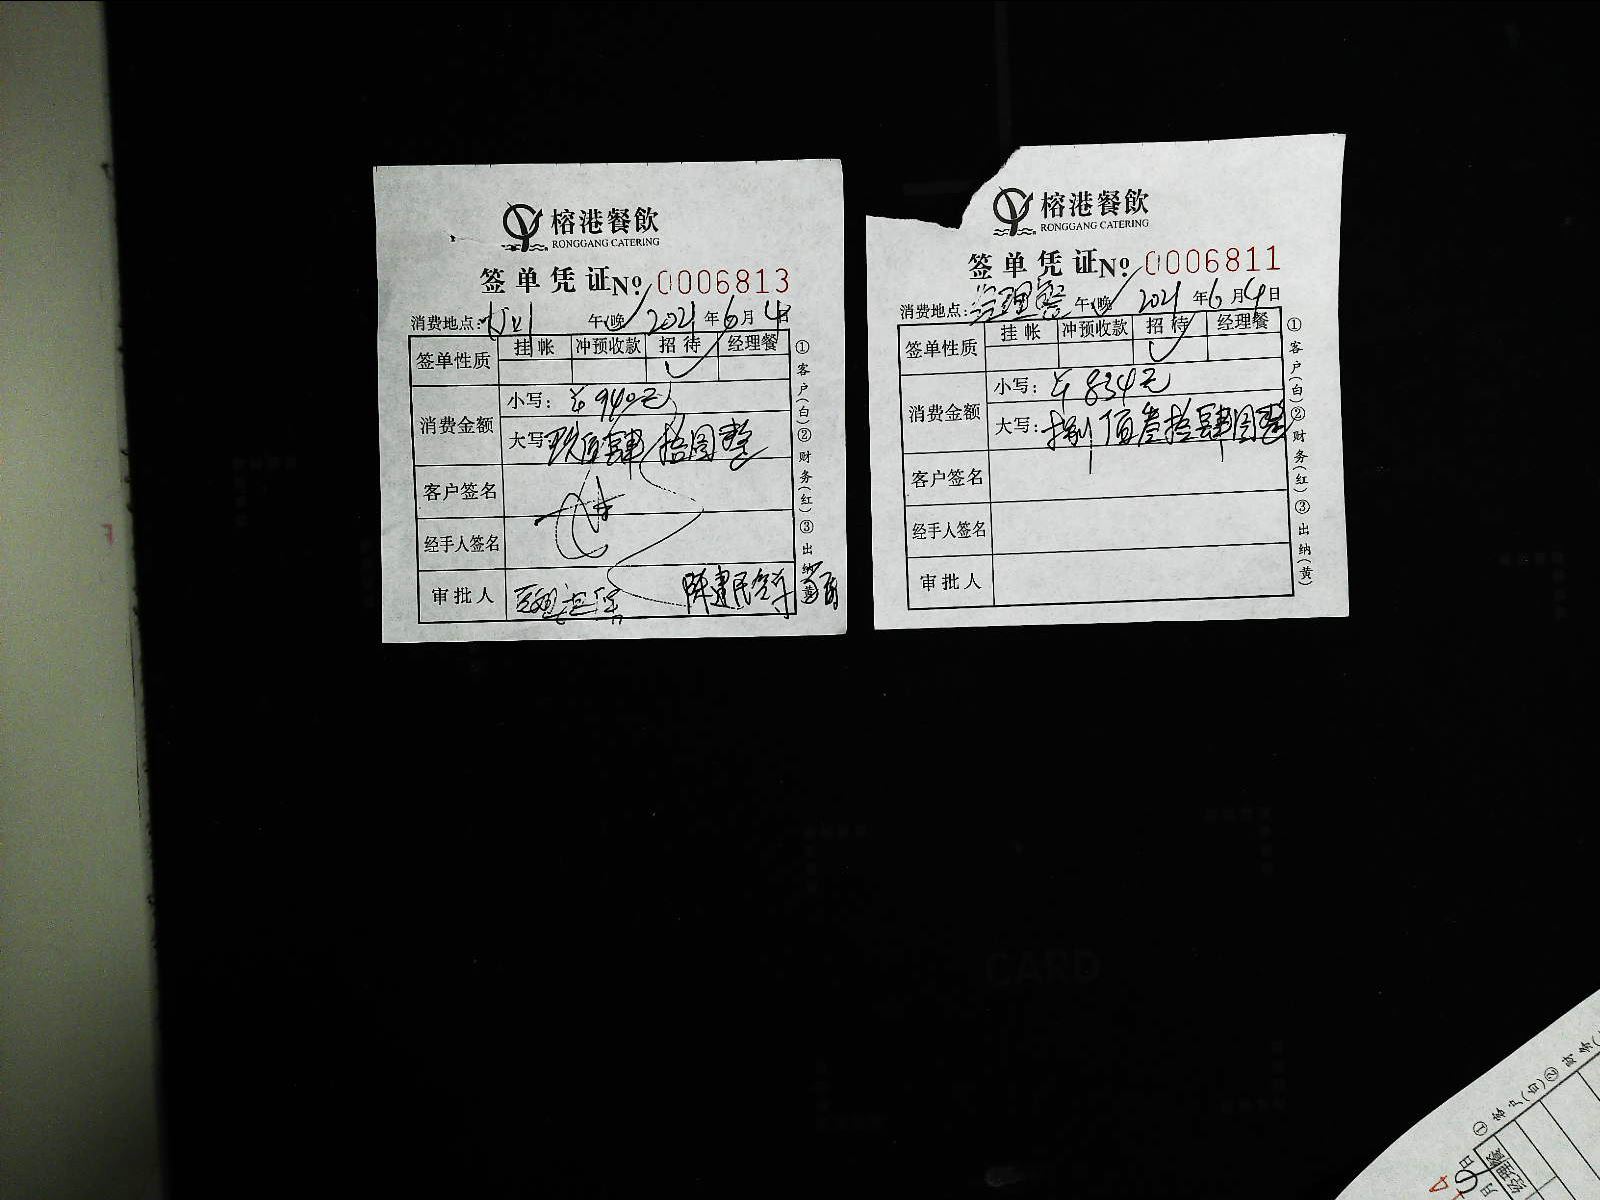 榕港餐飲
RONGGANG CATERING
签单凭证 No 0006813
消费地点: 午(晚 2021年6月4日
签单性质 挂帐 冲预收款 招待 经理餐
消费金额
小写: ¥940元
大写 玖佰肆拾圆整
客户签名
经手人签名
审批人
①客户(白)②财务(红)③出纳
榕港餐飲
RONGGANG CATERING
签单凭证 No 0006811
消费地点: 经理餐 午(晚 2021年6月4日
签单性质 挂帐 冲预收款 招待 经理餐
消费金额
小写: ¥834元
大写: 捌佰叁拾肆圆整
客户签名
经手人签名
审批人
①客户(白)②财务(红)③出纳(黄)
CARD
①客户(白)②财务
经理餐
月
日